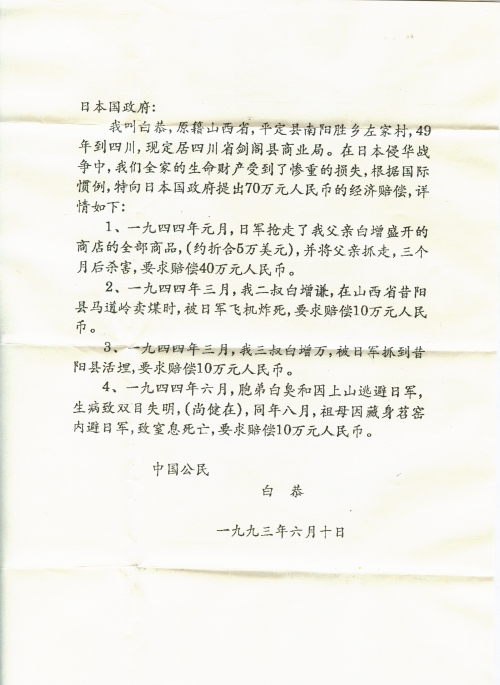 日本国政府:
我叫白恭,原籍山西省,平定县南阳胜乡左家村,49
年到四川,现定居四川省剑阁县商业局。在日本侵华战
争中,我们全家的生命财产受到了惨重的损失,根据国际
惯例,特向日本国政府提出70万元人民币的经济赔偿,详
情如下:
1、一九四四年元月,日军抢走了我父亲白增盛开的
商店的全部商品,(约折合5万美元),并将父亲抓走,三个
月后杀害,要求赔偿40万元人民币。
2、一九四四年三月,我二叔白增谦,在山西省昔阳
县马道岭卖煤时,被日军飞机炸死,要求赔偿10万元人民
币。
3、一九四四年三月,我三叔白增万,被日军抓到昔
阳县活埋,要求赔偿10万元人民币。
4、一九四四年六月,胞弟白奂和因上山逃避日军,
生病致双目失明,(尚健在),同年八月,祖母因藏身苕窖
内避日军,致窒息死亡,要求赔偿10万元人民币。
中国公民
白 恭
一九九三年六月十日